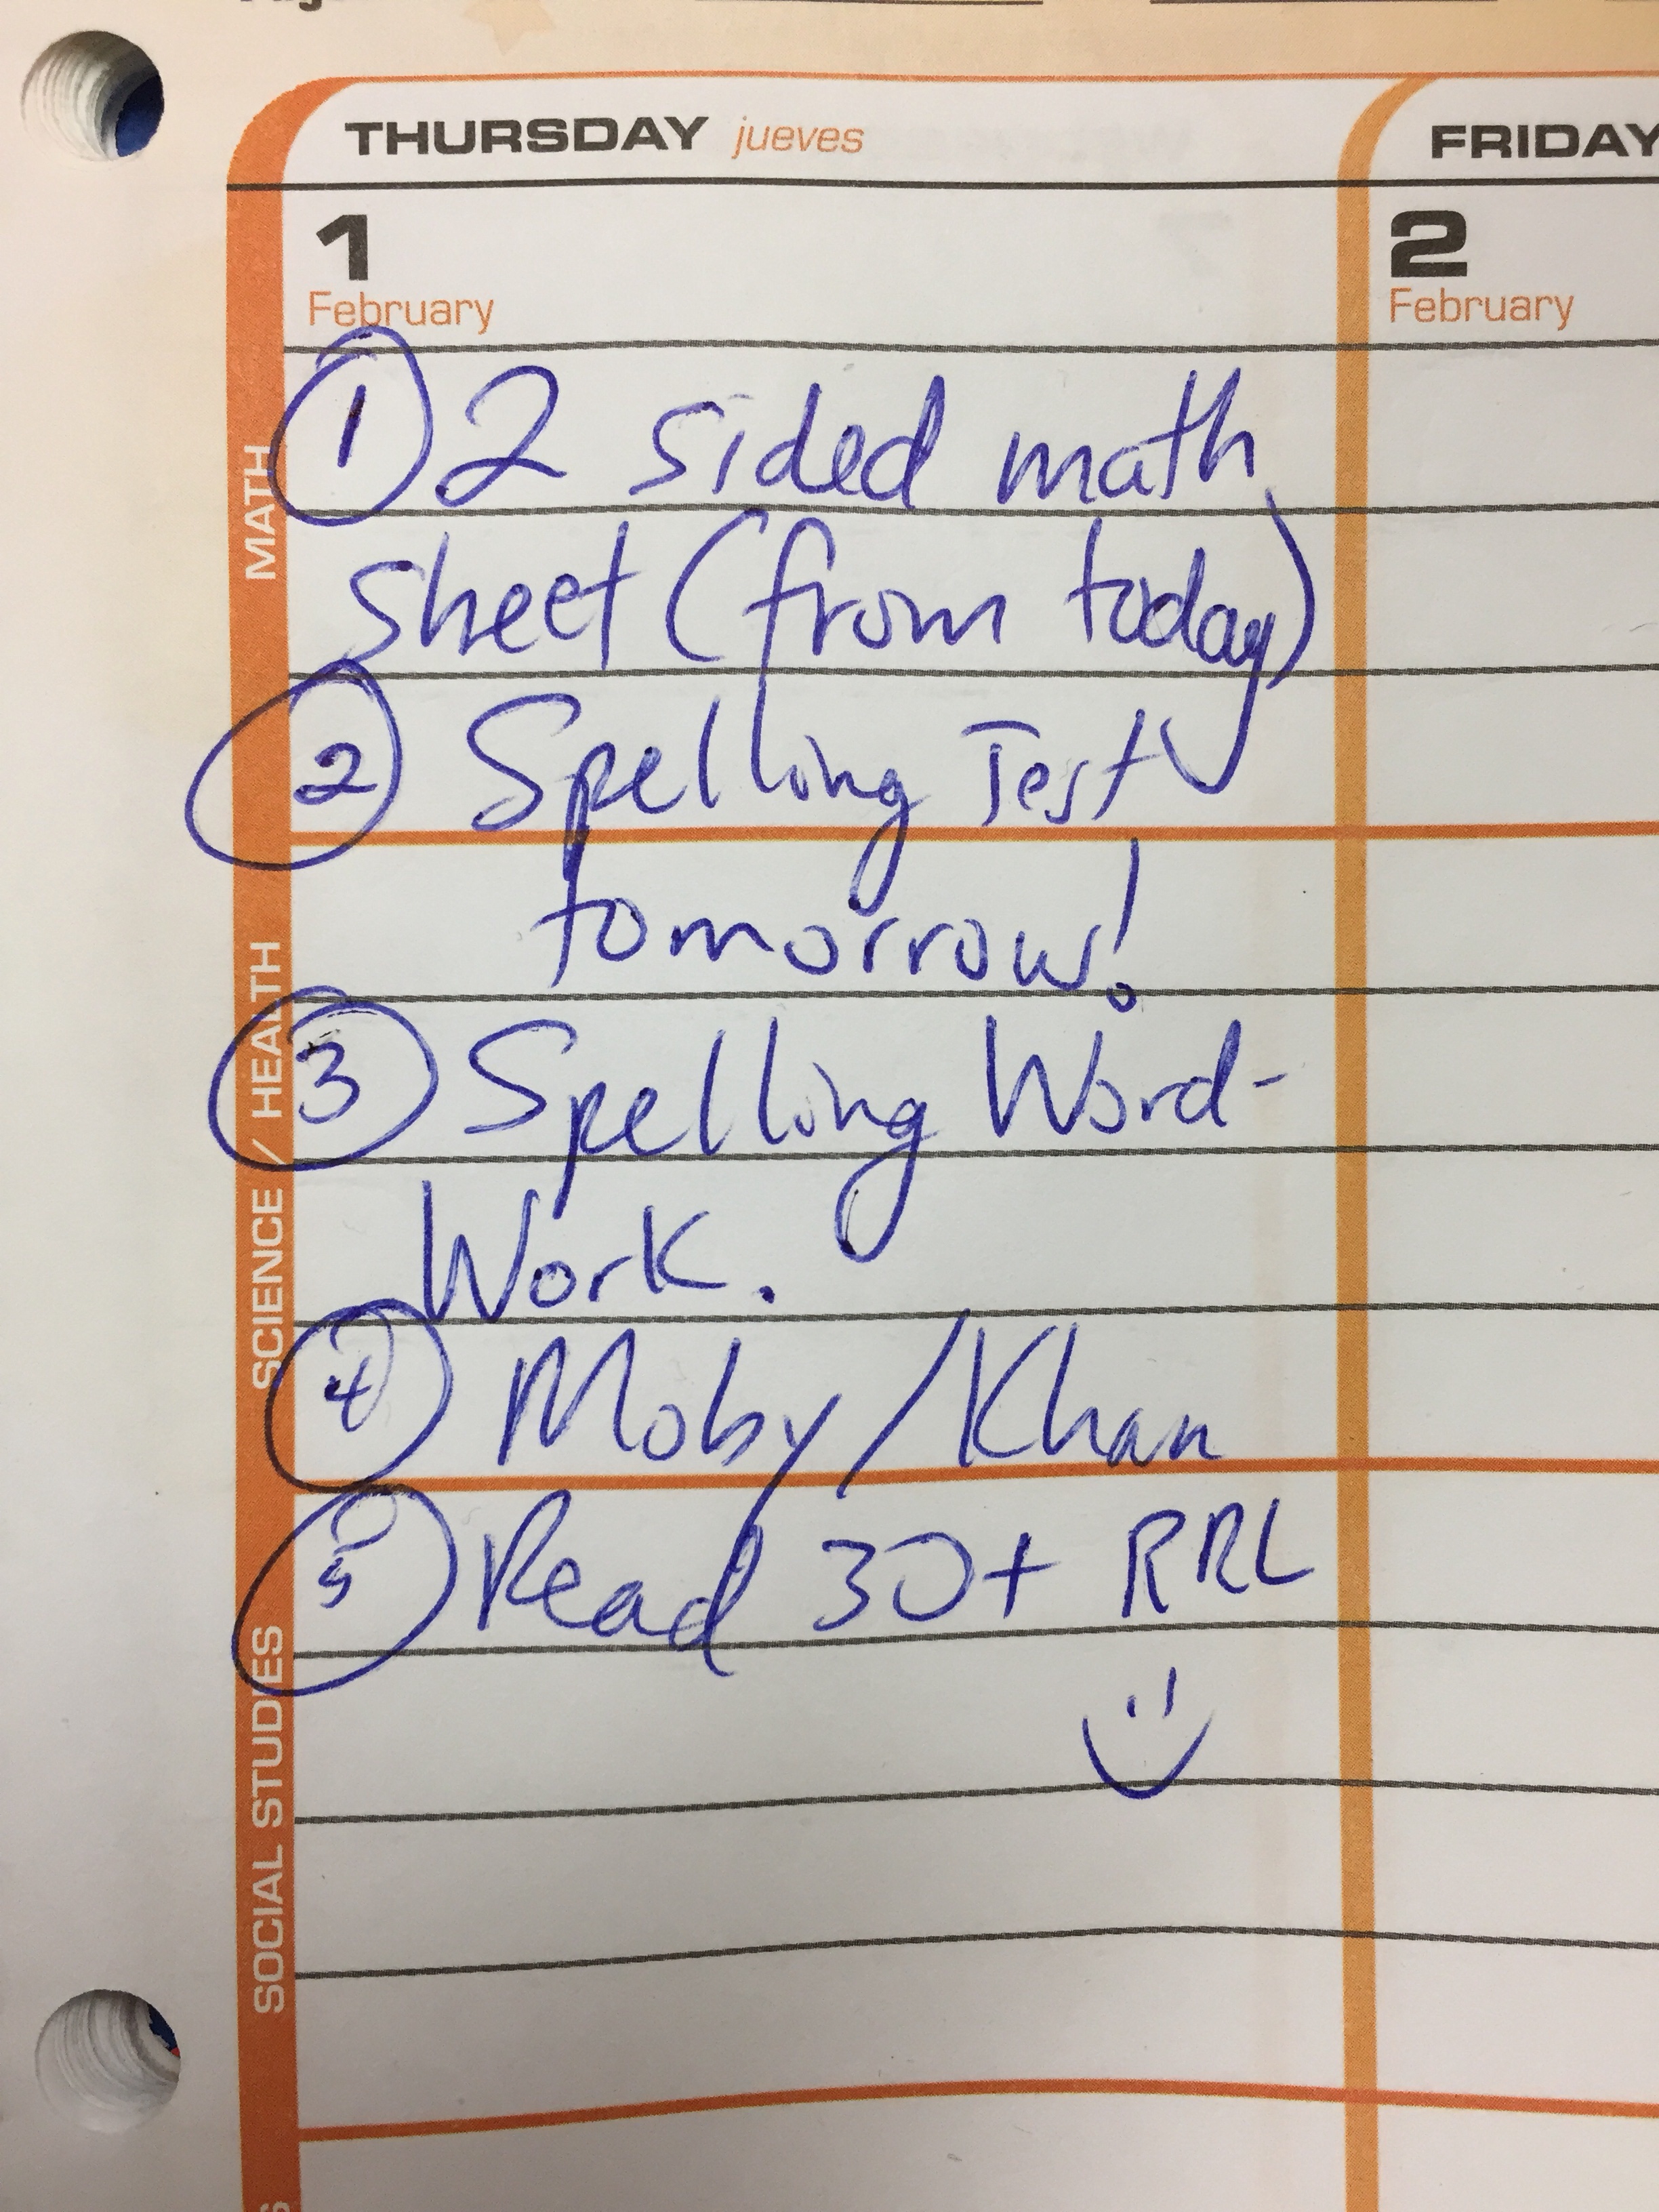 THURSDAY jueves
FRIDAY
1
February
2
February
MATH
① 2 sided math
sheet (from today)
② Spelling Test
tomorrow!
SCIENCE / HEALTH
③ Spelling Word-
Work.
④ Moby/Khan
⑤ Read 30+ RRL
SOCIAL STUDIES